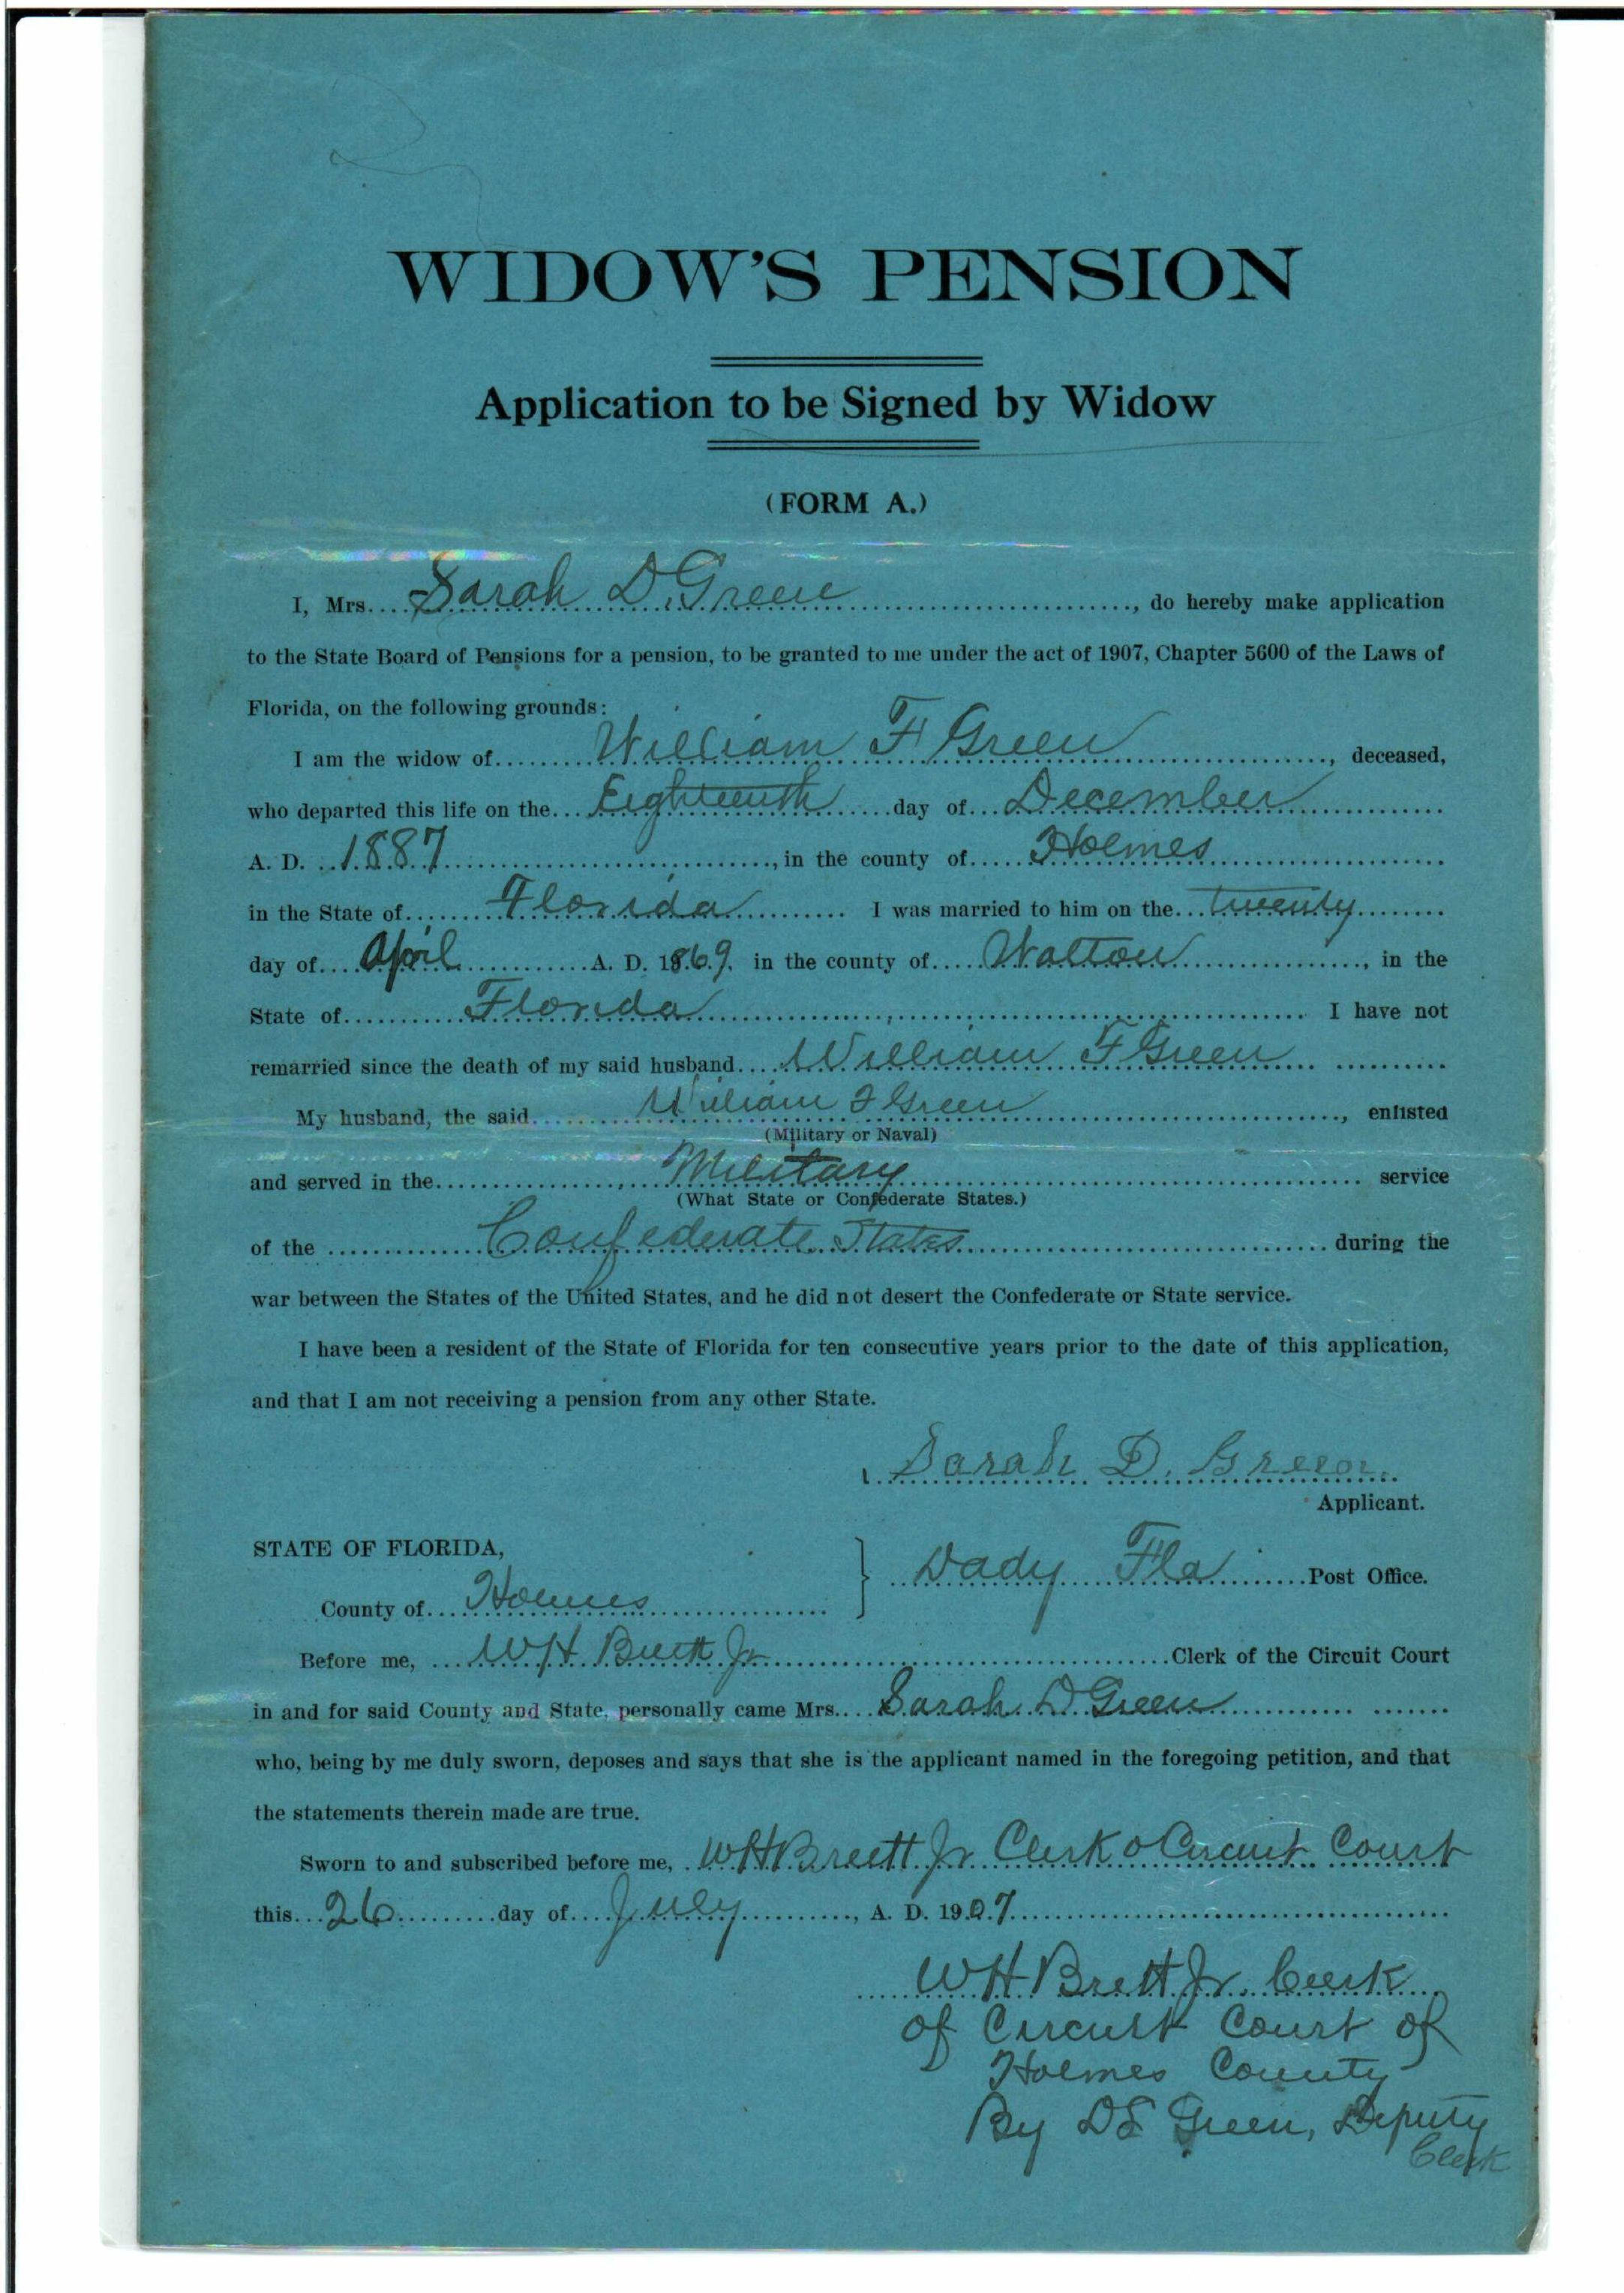 WIDOW'S PENSION
Application to be Signed by Widow
(FORM A.)
I, Mrs. Sarah D. Green, do hereby make application
to the State Board of Pensions for a pension, to be granted to me under the act of 1907, Chapter 5600 of the Laws of
Florida, on the following grounds:
I am the widow of William F Green, deceased,
who departed this life on the Eighteenth day of December
A. D. 1887, in the county of Holmes
in the State of Florida I was married to him on the twenty
day of April A. D. 1869. in the county of Walton, in the
State of Florida I have not
remarried since the death of my said husband William F Green
My husband, the said William F Green, enlisted
(Military or Naval)
and served in the Military service
(What State or Confederate States.)
of the Confederate States during the
war between the States of the United States, and he did not desert the Confederate or State service.
I have been a resident of the State of Florida for ten consecutive years prior to the date of this application,
and that I am not receiving a pension from any other State.
Sarah D. Green
Applicant.
STATE OF FLORIDA,
Dady Fla Post Office.
County of Holmes
Before me, WH Brett Jr Clerk of the Circuit Court
in and for said County and State, personally came Mrs. Sarah D Green
who, being by me duly sworn, deposes and says that she is the applicant named in the foregoing petition, and that
the statements therein made are true.
Sworn to and subscribed before me, WH Brett Jr Clerk o Circuit Court
this 26 day of July, A. D. 1907
WH Brett Jr. Clerk
of Circuit Court of
Holmes County
By DE Green, Deputy
Clerk